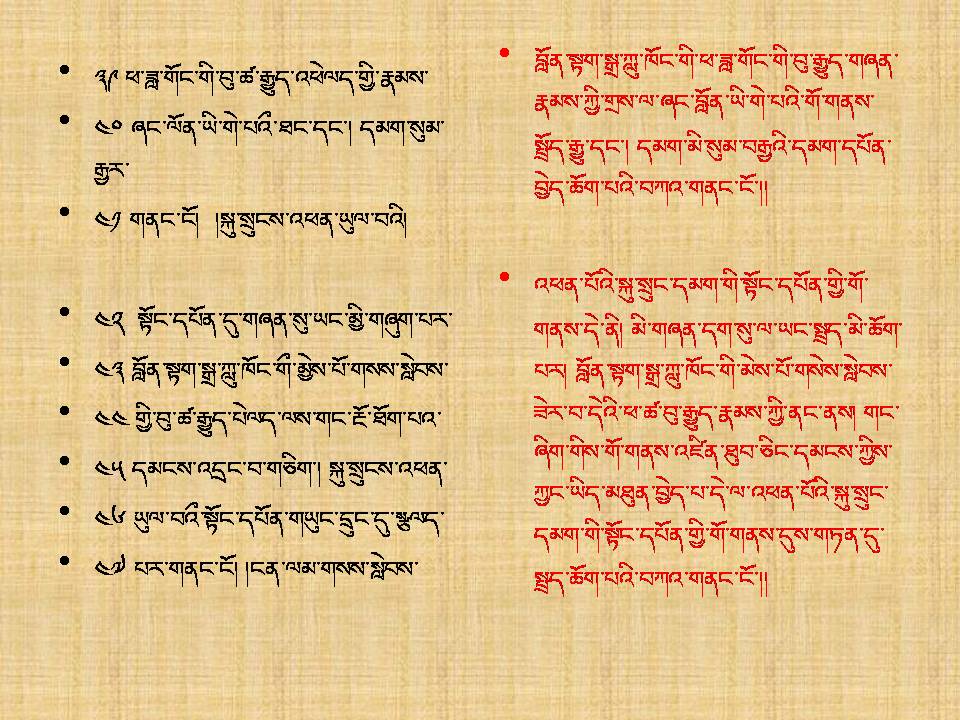 ༣༩ ཕ་ཟླ་གོང་གི་བུ་ཚ་རྒྱུད་འཕེལད་གྱི་རྣམས་
༤༠ ཞང་ལོན་ཡི་གེ་པའི་ཐང་དང་། དམག་སུམ་
རྒྱར་
༤༡ གནང་ངོ། །སྐུ་སྲུངས་འཕན་ཡུལ་བའི།
༤༢ སྟོང་དཔོན་དུ་གཞན་སུ་ཡང་མྱི་གཞུག་པར་
༤༣ བློན་སྟག་སྒྲ་ཀླུ་ཁོང་གི་མྱེས་པོ་གསས་སླེབས་
༤༤ གྱི་བུ་ཚ་རྒྱུད་པེལད་ལས་གང་ངོ་ཐོག་པའ་
༤༥ དམངས་འདྲང་བ་གཅིག་། སྐུ་སྲུངས་འཕན་
༤༦ ཡུལ་བའི་སྟོང་དཔོན་གཡུང་དྲུང་དུ་སྩལད་
༤༧ པར་གནང་ངོ། །ངན་ལམ་གསས་སླེབས་
བློན་སྟག་སྒྲ་ཀླུ་ཁོང་གི་ཕ་ཟླ་གོང་གི་བུ་རྒྱུད་གཞན་
རྣམས་ཀྱི་གྲས་ལ་ཞང་བློན་ཡི་གེ་པའི་གོ་གནས་
སྤྲོད་རྒྱུ་དང་། དམག་མི་སུམ་བརྒྱའི་དམག་དཔོན་
བྱེད་ཆོག་པའི་བཀའ་གནང་ངོ་།།
འཕན་པོའི་སྐུ་སྲུང་དམག་གི་སྟོང་དཔོན་གྱི་གོ་
གནས་དེ་ནི། མི་གཞན་དག་སུ་ལ་ཡང་སྤྲད་མི་ཆོག་
པར། བློན་སྟག་སྒྲ་ཀླུ་ཁོང་གི་མེས་པོ་གསེས་སླེབས་
ཟེར་བ་དེའི་ཕ་ཚ་བུ་རྒྱུད་རྣམས་ཀྱི་ནང་ནས། གང་
ཞིག་གིས་གོ་གནས་འཛིན་ཐུབ་ཅིང་དམངས་ཀྱིས་
ཀྱང་ཡིད་མཐུན་བྱེད་པ་དེ་ལ་འཕན་པོའི་སྐུ་སྲུང་
དམག་གི་སྟོང་དཔོན་གྱི་གོ་གནས་དུས་གཏན་དུ་
སྤྲད་ཆོག་པའི་བཀའ་གནང་ངོ་།།